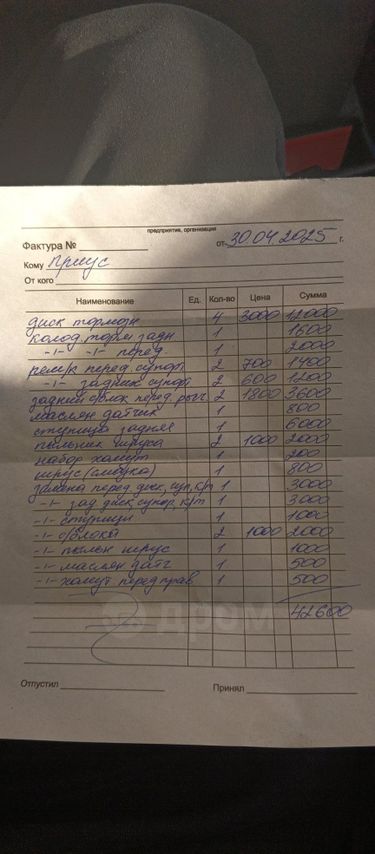 предприятие, организация
Фактура № от 30.04.2025 г.
Кому Приус
От кого
Наименование Ед. Кол-во Цена Сумма
диск тормозн 4 3000 12000
колод. торм задн 1 1600
-"- -"- перед 1 2000
рем/к перед. супорт 2 700 1400
-"- задний супорт 2 600 1200
задний с/блок перед. рыч. 2 1800 3600
маслян датчик 1 800
ступица задняя 1 6000
пыльник шруса 2 1000 2000
набор хомут 1 200
шрус (смазка) 1 800
замена перед. диск, суп, к/т 1 3000
-"- зад диск, супор, к/т 1 3000
-"- ступицы 1 1000
-"- с/блоки 2 1000 2000
-"- пыльн шрус 1 1000
-"- маслян датч 1 500
-"- хомут перед прав 1 500
42600
дром
Отпустил Принял